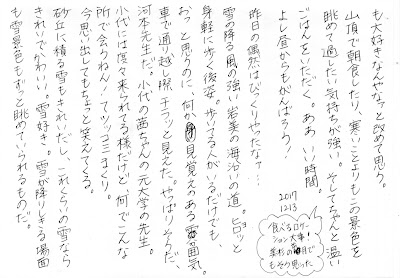 も大好きなんやなぁと改めて思う。
山頂で朝食したり、寒いことよりもこの景色を
眺めて過したい気持ちが強い。そしてちゃんと温い
ごはんをいただく。ああいい時間
よし昼からもがんばろう!
昨日の偶然はびっくりやったなァ…
雪の降る風の強い岩美の海沿いの道。ヒョッと
身軽に歩く後姿。歩いてる人がいるだけでも
おっと思うのに、何か見覚えのある雰囲気。
車で通り越し際、チラッと見えた。やっぱりそうだ、
河本先生だ。小代の茜ちゃんの元大学の先生。
小代には度々来られてる様だけど、何でこんな
所で会うねん!てツッコミまくり。
今思い出してもちょっと笑えてくる。
砂丘に積る雪もきれいだし、これくらいの雪なら
きれいでかわいい。雪好き。雪が降りしきる場面
も雪景色もずっと眺めていられるものだ。
2017
12.13
食べるロケー
ション大事!
某杉の目で
もそう思った